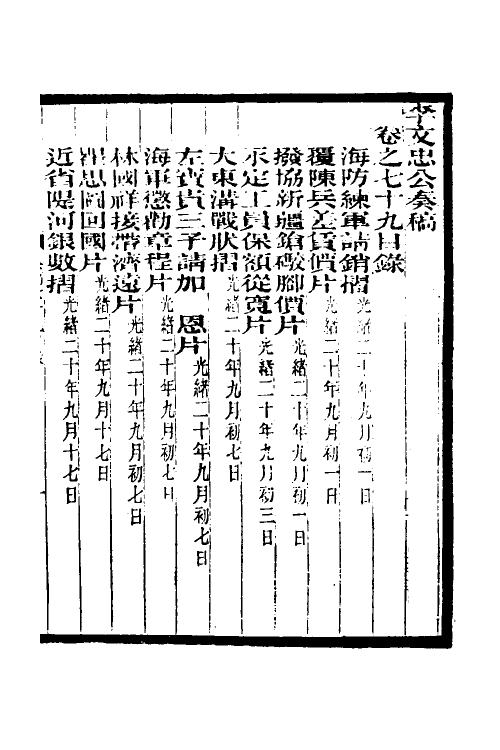 李文忠公奏稿
卷之七十九目錄
海防練軍請銷摺光緒二十年九月初一日
覆陳兵差賃價片光緒二十年九月初一日
撥協新疆鎗礮腳價片光緒二十年九月初一日
永定工員保額從寬片光緒二十年九月初三日
大東溝戰狀摺光緒二十年九月初七日
左寶貴三子請加 恩片光緒二十年九月初七日
海軍懲勸章程片光緒二十年九月初七日
林國祥接帶濟遠片光緒二十年九月初七日
恩圖回國片光緒二十年九月十七日
近省隄河銀數摺光緒二十年九月十七日